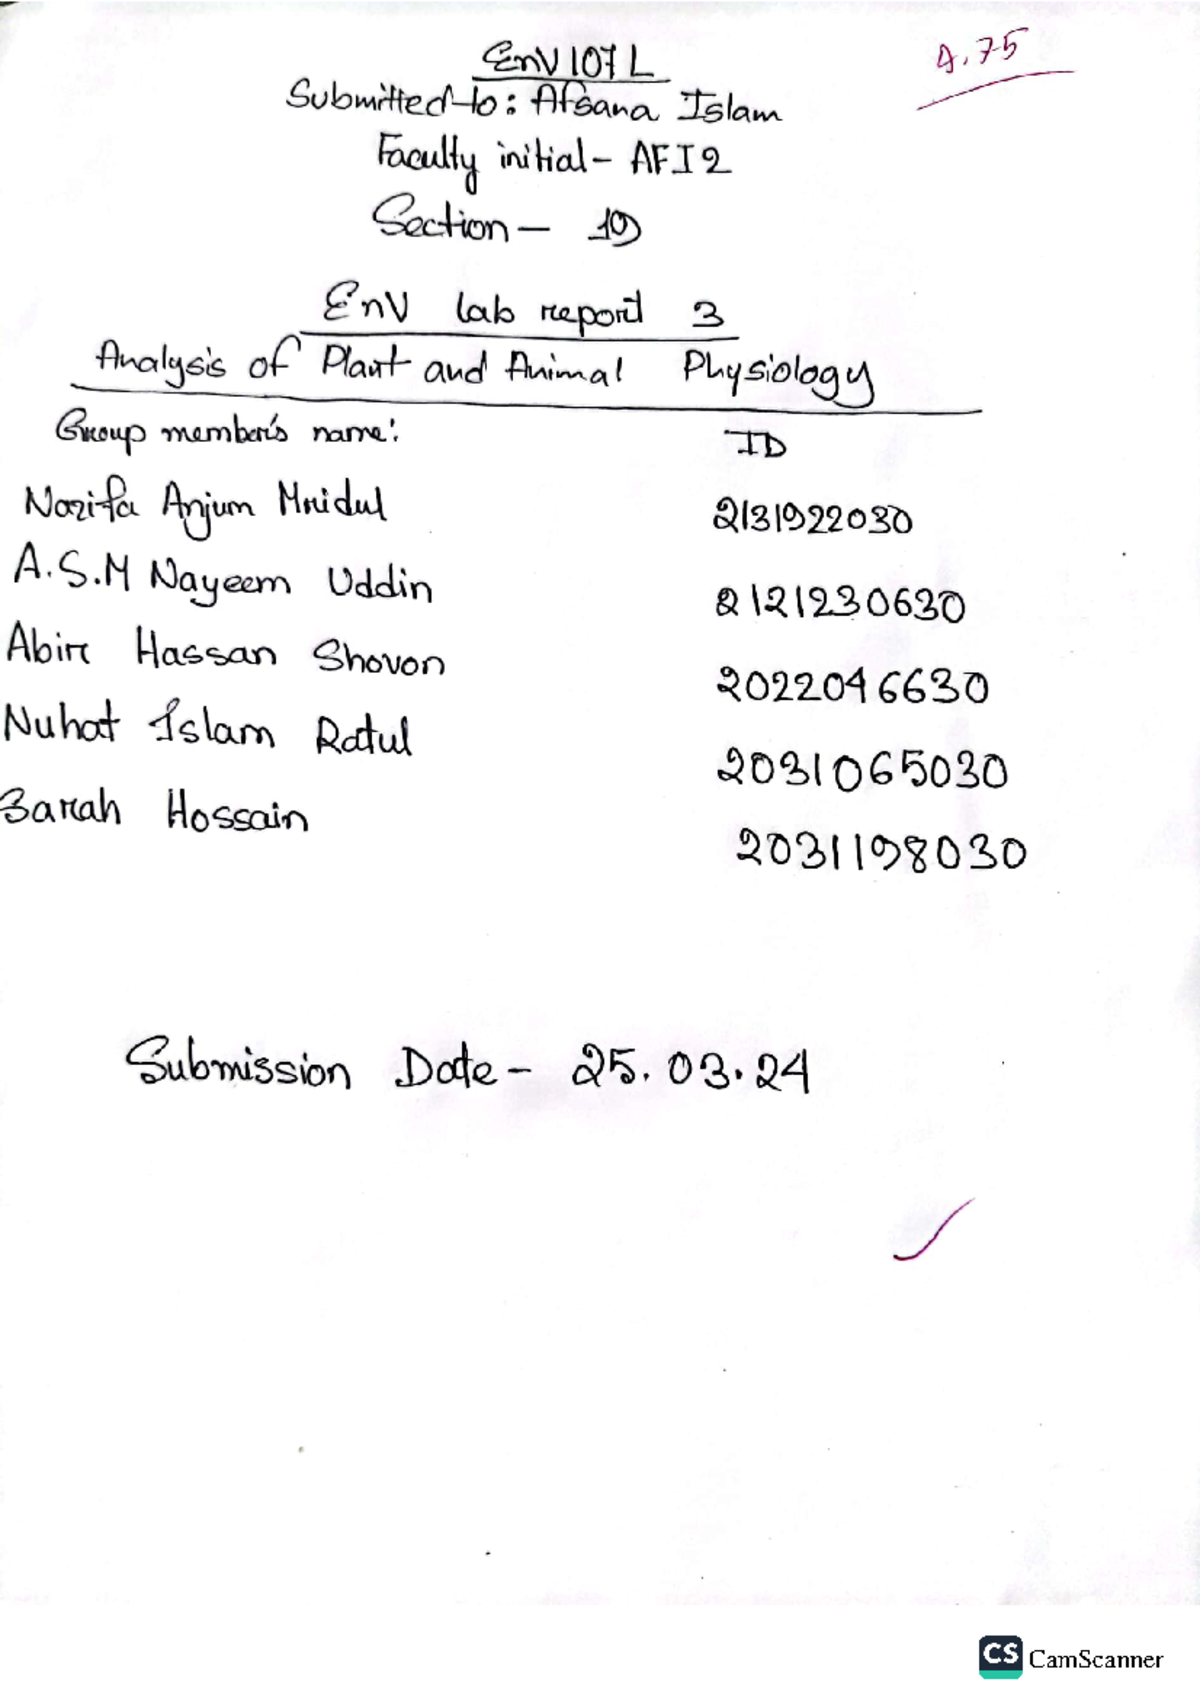 EnV 107 L
4.75
Submitted to: Afsana Islam
Faculty initial - AFI2
Section - 10
EnV lab report 3
Analysis of Plant and Animal Physiology
Group member's name: ID
Nazifa Anjum Mridul 2131922030
A.S.M Nayeem Uddin 2121230630
Abir Hassan Shovon 2022046630
Nuhat Islam Ratul 2031065030
Zarah Hossain 2031198030
Submission Date - 25.03.24
CS CamScanner